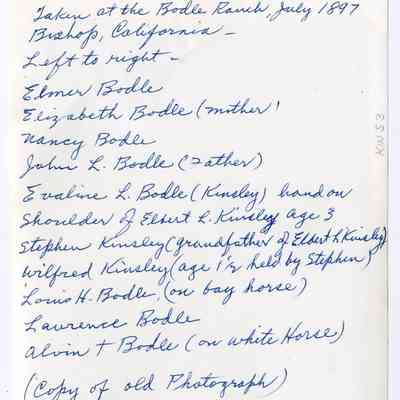 Taken at the Bodle Ranch, July 1897
Bishop, California -
Left to right -
Elmer Bodle
Elizabeth Bodle (mother)
Nancy Bodle
John L. Bodle (Father)
Evaline L. Bodle (Kinsley) hand on
Shoulder of Elbert L. Kinsley age 3
Stephen Kinsley (grandfather of Elbert L Kinsley)
Wilfred Kinsley (age 1½ held by Stephen)
Louis H. Bodle, (on bay horse)
Lawrence Bodle
Alvin T Bodle (on white Horse)
(Copy of old Photograph)